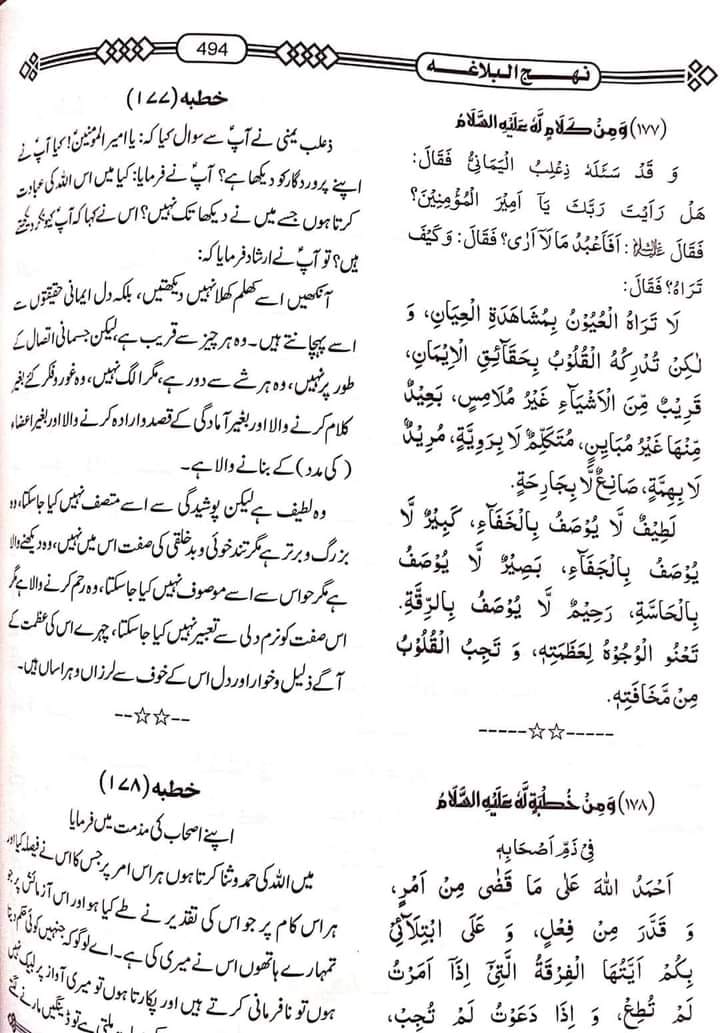 494
نہج البلاغہ
(۱۷۷) وَ مِنْ كَلَامٍ لَّهٗ عَلَيْهِ السَّلَامُ
وَ قَدْ سَئَلَهٗ ذِعْلِبُ الْيَمَانِیُّ فَقَالَ:
هَلْ رَاَيْتَ رَبَّكَ يَاۤ اَمِيْرَ الْمُؤْمِنِيْنَ؟
فَقَالَ ؑ: اَفَاَعْبُدُ مَا لَاۤ اَرٰى؟ فَقَالَ: وَ كَيْفَ
تَرَاهُ؟ فَقَالَ:
لَا تَرَاهُ الْعُيُوْنُ بِمُشَاهَدَةِ الْعِيَانِ، وَ
لٰكِنْ تُدْرِكُهُ الْقُلُوْبُ بِحَقَآئِقِ الْاِيْمَانِ،
قَرِيْبٌ مِّنَ الْاَشْيَآءِ غَيْرُ مُلَامِسٍ، بَعِيْدٌ
مِّنْهَا غَيْرُ مُبَايِنٍ، مُتَكَلِّمٌ لَا بِرَوِيَّةٍ، مُرِيْدٌ
لَا بِهِمَّةٍ، صَانِعٌ لَّا بِجَارِحَةٍ.
لَطِيْفٌ لَّا يُوْصَفُ بِالْخَفَآءِ، كَبِيْرٌ لَّا
يُوْصَفُ بِالْجَفَآءِ، بَصِيْرٌ لَّا يُوْصَفُ
بِالْحَاسَّةِ، رَحِيْمٌ لَّا يُوْصَفُ بِالرِّقَّةِ.
تَعْنُو الْوُجُوْهُ لِعَظَمَتِهٖ، وَ تَجِبُ الْقُلُوْبُ
مِنْ مَّخَافَتِهٖ.
-----☆☆-----
(۱۷۸) وَ مِنْ خُطْبَةٍ لَّهٗ عَلَيْهِ السَّلَامُ
فِیْ ذَمِّ اَصْحَابِهٖ
اَحْمَدُ اللهَ عَلٰى مَا قَضٰى مِنْ اَمْرٍ،
وَ قَدَّرَ مِنْ فِعْلٍ، وَ عَلَى ابْتِلَآئِیْ
بِكُمْ اَيَّتُهَا الْفِرْقَةُ الَّتِیْۤ اِذَاۤ اَمَرْتُ
لَمْ تُطِعْ، وَ اِذَا دَعَوْتُ لَمْ تُجِبْ،
خطبہ (۱۷۷)
ذعلب یمنی نے آپؑ سے سوال کیا کہ: یا امیر المومنینؑ! کیا آپؑ نے
اپنے پروردگار کو دیکھا ہے؟ آپؑ نے فرمایا: کیا میں اس اللہ کی عبادت
کرتا ہوں جسے میں نے دیکھا تک نہیں؟ اس نے کہا کہ آپؑ کیونکر دیکھتے
ہیں؟ تو آپؑ نے ارشاد فرمایا کہ:
آنکھیں اسے کھلم کھلا نہیں دیکھتیں، بلکہ دل ایمانی حقیقتوں سے
اسے پہچانتے ہیں۔ وہ ہر چیز سے قریب ہے، لیکن جسمانی اتصال کے
طور پر نہیں، وہ ہر شے سے دور ہے، مگر الگ نہیں، وہ غور و فکر کئے بغیر
کلام کرنے والا اور بغیر آمادگی کے قصد و ارادہ کرنے والا اور بغیر اعضاء
(کی مدد) کے بنانے والا ہے۔
وہ لطیف ہے لیکن پوشیدگی سے اسے متصف نہیں کیا جا سکتا، وہ
بزرگ و برتر ہے مگر تند خوئی و بدخلقی کی صفت اس میں نہیں، وہ دیکھنے والا
ہے مگر حواس سے اسے موصوف نہیں کیا جا سکتا، وہ رحم کرنے والا ہے مگر
اس صفت کو نرم دلی سے تعبیر نہیں کیا جا سکتا، چہرے اس کی عظمت کے
آگے ذلیل و خوار اور دل اس کے خوف سے لرزاں و ہراساں ہیں۔
--☆☆--
خطبہ (۱۷۸)
اپنے اصحاب کی مذمت میں فرمایا
میں اللہ کی حمد و ثنا کرتا ہوں ہر اس امر پر جس کا اس نے فیصلہ کیا اور
ہر اس کام پر جو اس کی تقدیر نے طے کیا ہو اور اس آزمائش پر جو
تمہارے ہاتھوں اس نے میری کی ہے۔ اے لوگو کہ جنہیں کوئی حکم دیتا
ہوں تو نافرمانی کرتے ہیں اور پکارتا ہوں تو میری آواز پر لبیک نہیں
ملتی ہے تو ڈینگیں مارنے لگتے